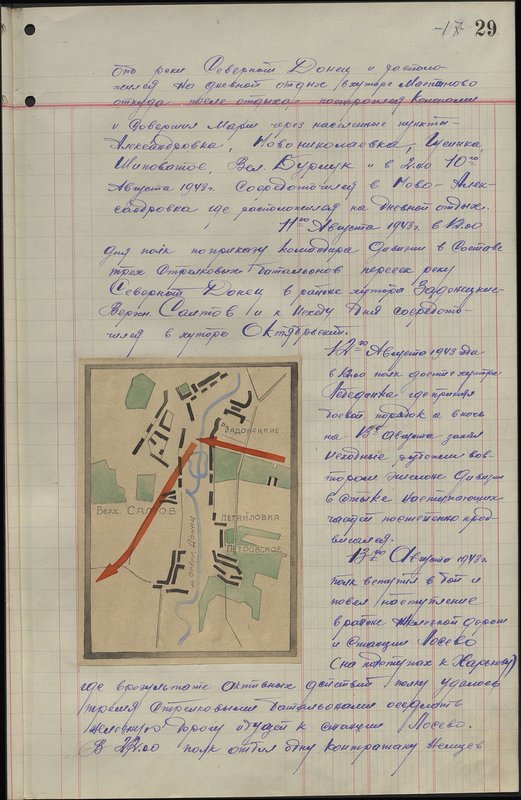 -17- 29
ото реки Северный Донец и располо-
жился на дневной отдых в хуторе
откуда после отдыха построился колонами
и совершил марш через населенные пункты
Александровка, Ново николаевка,
Шиповатое, Вел. Бурлук и в 2.00 10го
Августа 1943г. Сосредоточился в Ново-Алек-
сандровка где расположился на дневной отдых.
11го Августа 1943г. в 12.00
дня полк по приказу командира дивизии в составе
трех стрелковых батальонов пересек реку
Северный Донец в районе хутора Задонецкие-
Верхн. Салтов и к исходу дня сосредото-
чился в хуторе Октябрьский.
12го Августа 1943 года
в 12.00 полк достиг хутора
Лебединка где принял
боевой порядок а в ночь
на 13е Августа занял
исходные рубежи во в-
тором эшелоне дивизии
в стыке наступающих
частей постепенно прод-
вигался.
13го Августа 1943г.
полк вступил в бой и
повел наступление
в районе железной дороги
и станции Лосево
(на подступах к Харькову)
где в результате активных действий полку удалось
тремя стрелковыми батальонами оседлать
железную дорогу идущей к станции Лосево.
В 22.00 полк отбил одну контратаку немцев
Задонецкие
Верх. Салтов
Метайловка
Петровское
р. Север. Донец